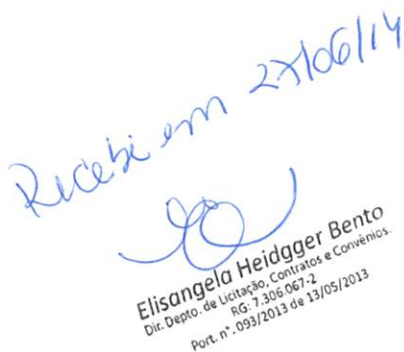 Recebi em 27/06/14
Elisangela Heidgger Bento
Dir. Depto. de Licitação, Contratos e Convênios.
RG: 7.306.067-2
Port. n°. 093/2013 de 13/05/2013